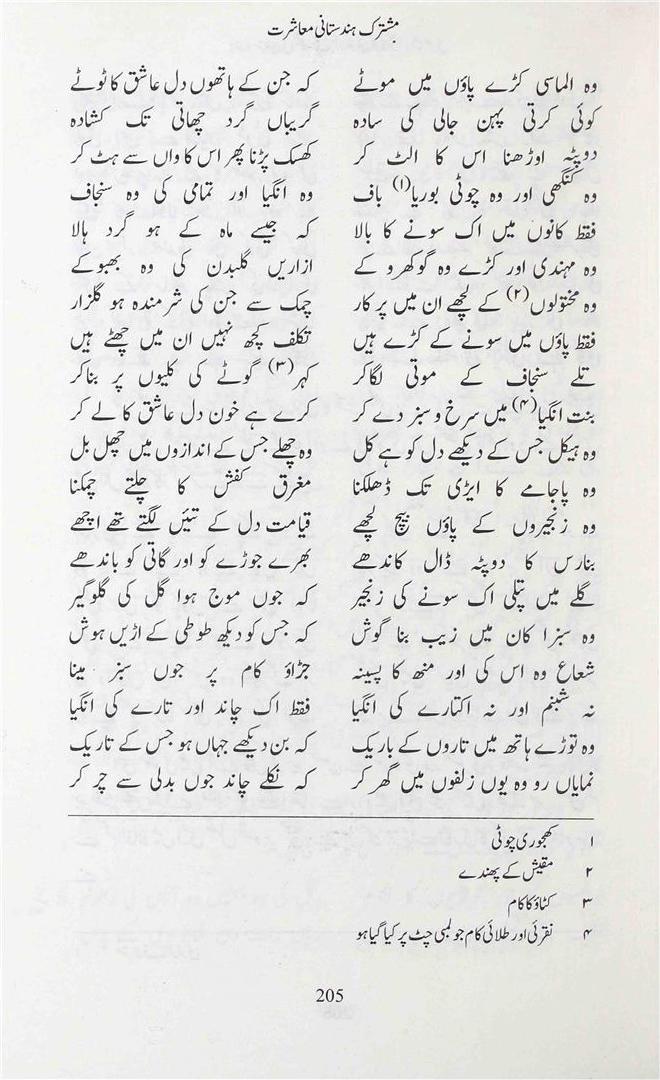 مشترک ہندستانی معاشرت
وہ الماسی کڑے پاؤں میں موٹے کہ جن کے ہاتھوں دل عاشق کا ٹوٹے
کوئی کرتی پہن جالی کی سادہ گریباں گرد چھاتی تک کشادہ
دوپٹہ اوڑھنا اس کا الٹ کر کھسک پڑنا پھر اس کا واں سے ہٹ کر
وہ کنگھی اور وہ چوٹی بوریا(۱) باف وہ انگیا اور تمامی کی وہ سنجاف
فقط کانوں میں اک سونے کا بالا کہ جیسے ماہ کے ہو گرد ہالا
وہ مہندی اور کڑے وہ گوکھرو کے ازاریں گلبدن کی وہ بھبوکے
وہ مختولوں(۲) کے لچھے ان میں پرکار چمک سے جن کی شرمندہ ہو گلزار
فقط پاؤں میں سونے کے کڑے ہیں تکلف کچھ نہیں ان میں چھٹے ہیں
تلے سنجاف کے موتی لگاکر کہر(۳) گوٹے کی کلیوں پر بناکر
بنت انگیا(۴) میں سرخ و سبز دے کر کرے ہے خون دل عاشق کا لے کر
وہ ہیکل جس کے دیکھے دل کو ہے کل وہ چھلے جس کے اندازوں میں چھل بل
وہ پاجامے کا ایڑی تک ڈھلکنا مغرق کفش کا چلتے چمکنا
وہ زنجیروں کے پاؤں بیچ لچھے قیامت دل کے تئیں لگتے تھے اچھے
بنارس کا دوپٹہ ڈال کاندھے بھرے جوڑے کو اور گاتی کو باندھے
گلے میں پتلی اک سونے کی زنجیر کہ جوں موج ہوا گل کی گلوگیر
وہ سبزا کان میں زیب بنا گوش کہ جس کو دیکھ طوطی کے اڑیں ہوش
شعاع وہ اس کی اور منھ کا پسینہ جڑاؤ کام پر جوں سبز مینا
نہ شبنم اور نہ اکتارے کی انگیا فقط اک چاند اور تارے کی انگیا
وہ توڑے ہاتھ میں تاروں کے باریک کہ بن دیکھے جہاں ہو جس کے تاریک
نمایاں رو وہ یوں زلفوں میں گھر کر کہ نکلے چاند جوں بدلی سے چر کر
۱ کھجوری چوٹی
۲ مقیش کے پھندے
۳ کٹاؤ کا کام
۴ نقرئی اور طلائی کام جو لمبی چٹ پر کیا گیا ہو
205